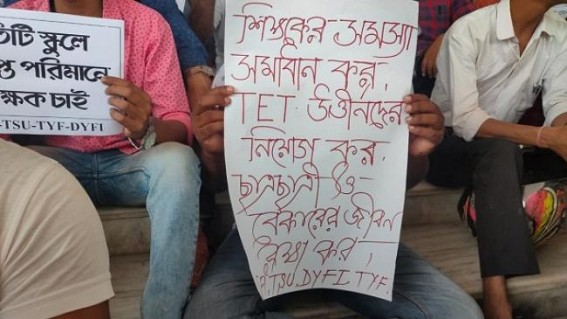 তিটি স্কুলে
প্ত পরিমানে
ক্ষক চাই
-TSU-TYF-DYFI
শিক্ষকের সমস্যা
সমাধান কর,
TET উত্তীর্নদের
নিয়োগ কর,
ছাত্রছাত্রী ও
বেকারের জীবন
রক্ষা কর,
TSU.DYFI.TYF.